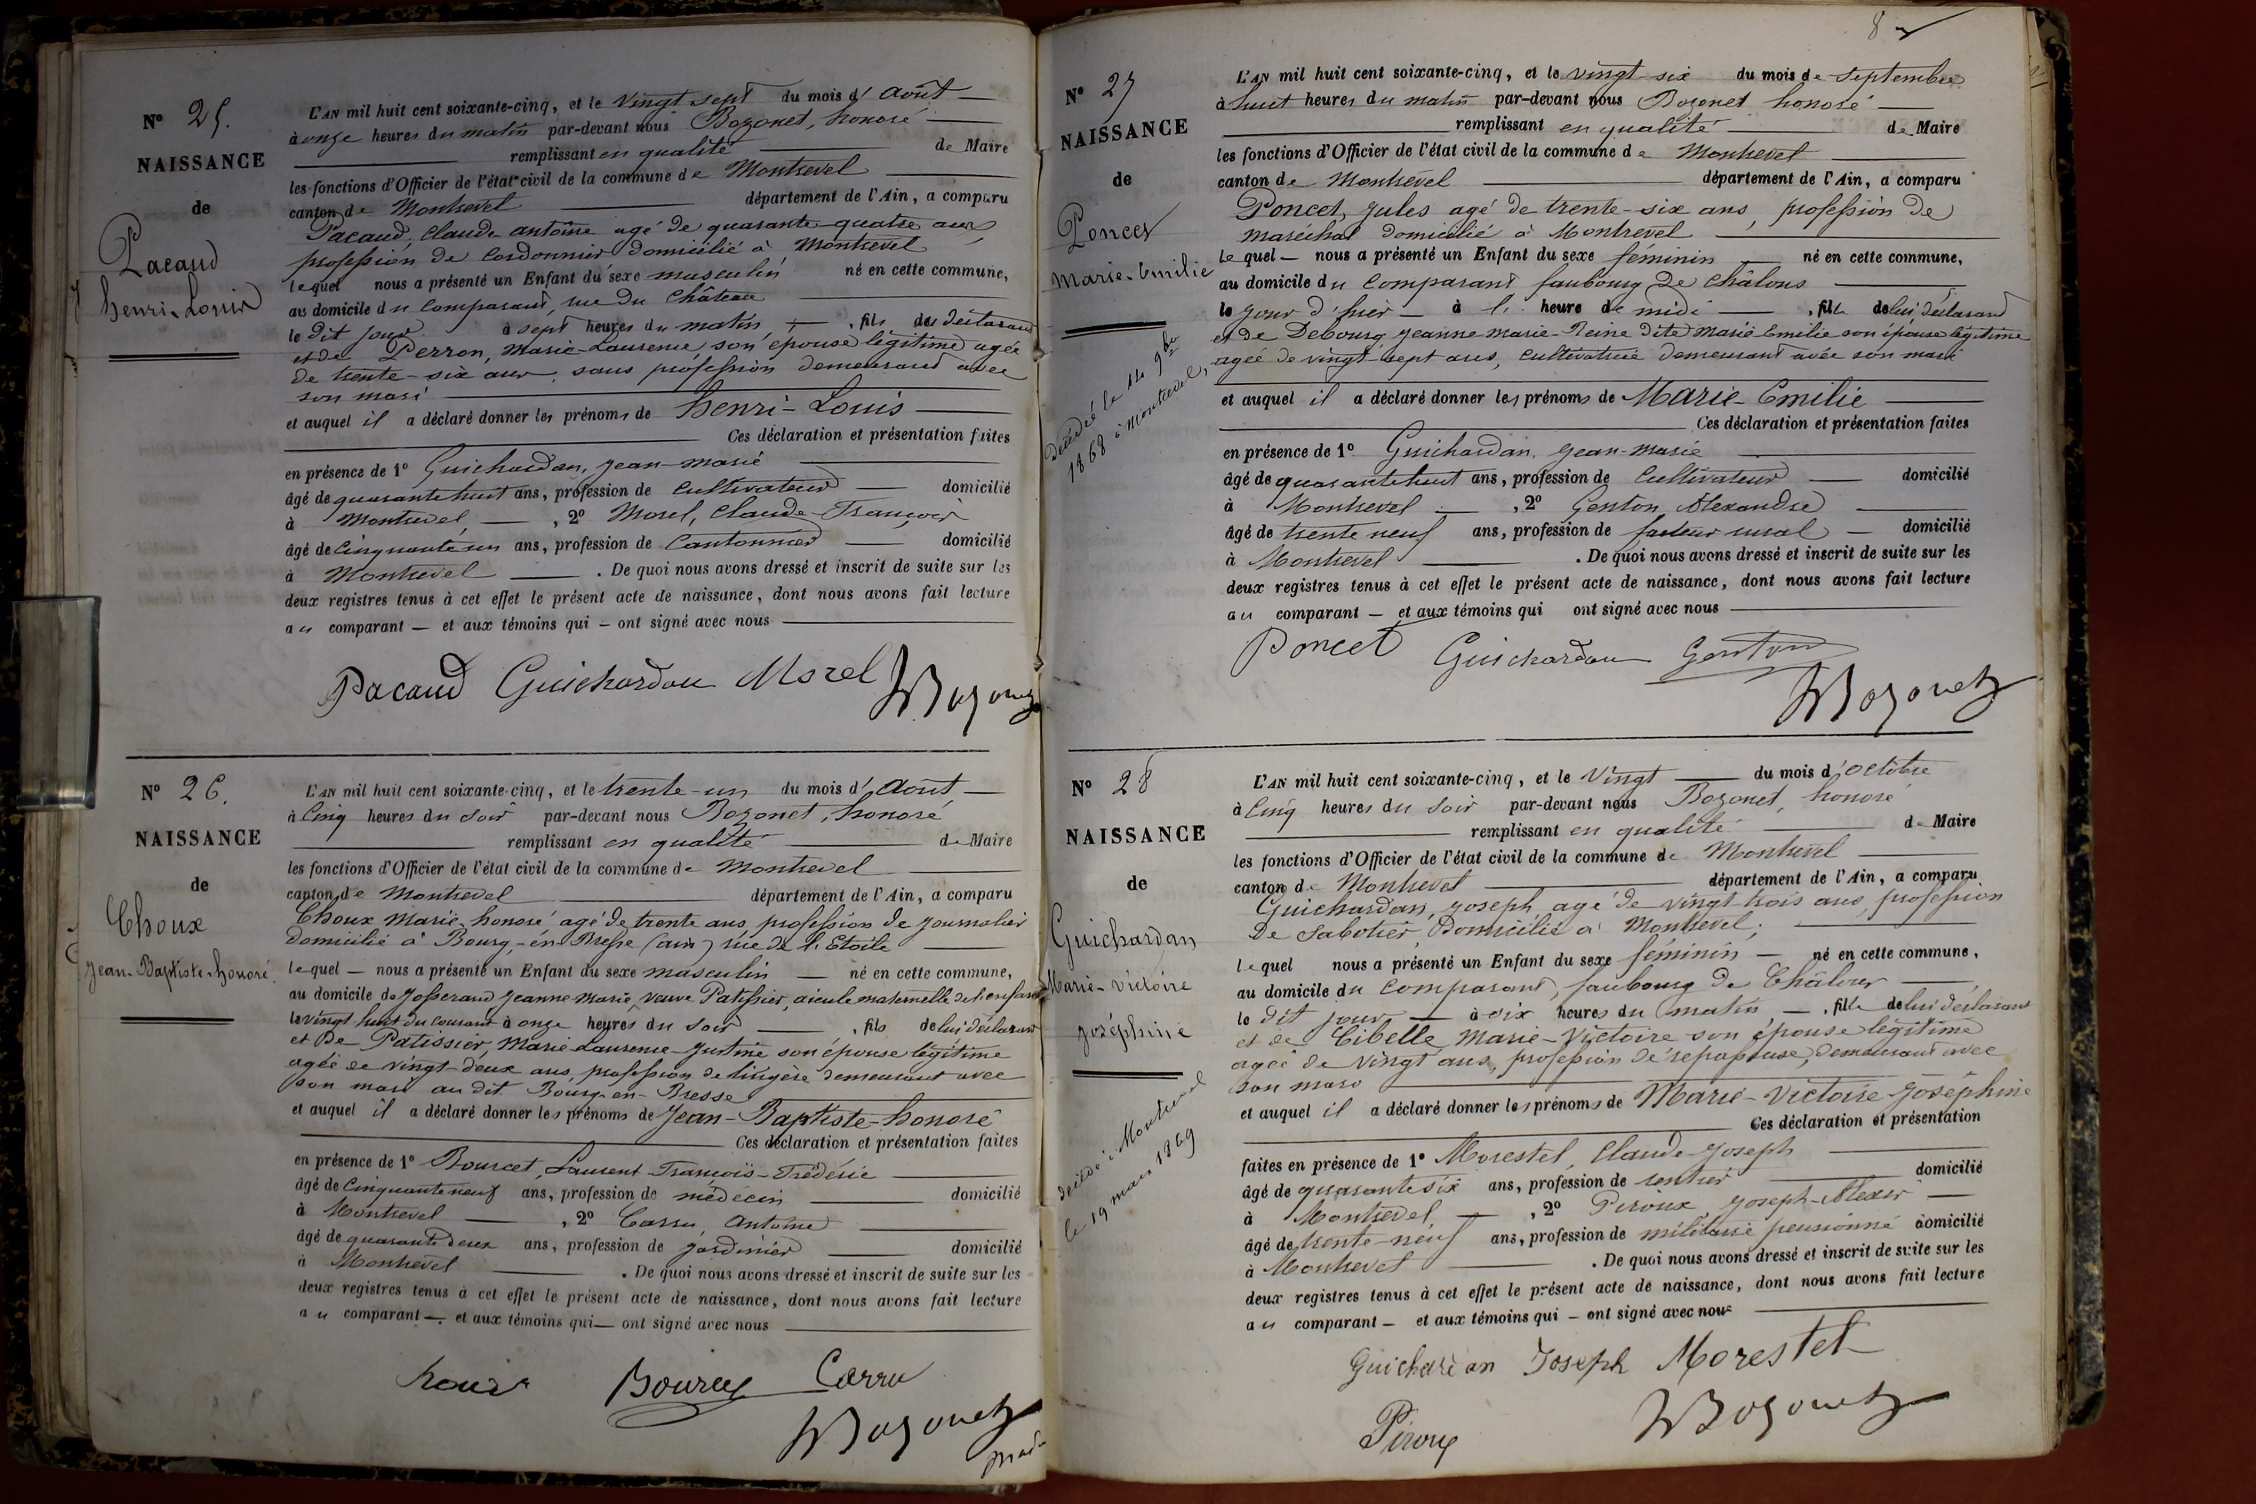 N° 25.
NAISSANCE
de
Pacaud
henri-Louis
L'AN mil huit cent soixante-cinq, et le vingt sept du mois d'Août
à onze heures du matin par-devant nous Bozonet, honoré
remplissant en qualité de Maire
les fonctions d'Officier de l'état civil de la commune de Montrevel
canton de Montrevel département de l'Ain, a comparu
Pacaud, Claude antoine agé de quarante quatre ans,
profession de Cordonnier domicilié à Montrevel
lequel nous a présenté un Enfant du sexe masculin né en cette commune,
au domicile du Comparant, rue du Château
le dit jour à sept heures du matin, fils des déclarant
et de Perron, Marie-Laurence, son épouse légitime agée
de trente-six ans, sans profession demeurant avec
son mari
et auquel il a déclaré donner les prénoms de henri-Louis
Ces déclaration et présentation faites
en présence de 1° Guichardan, Jean-Marie
âgé de quarante huit ans, profession de Cultivateur domicilié
à Montrevel, 2° Morel, Claude-François
âgé de Cinquante un ans, profession de Cantonnier domicilié
à Montrevel. De quoi nous avons dressé et inscrit de suite sur les
deux registres tenus à cet effet le présent acte de naissance, dont nous avons fait lecture
au comparant — et aux témoins qui — ont signé avec nous
Pacaud Guichardan Morel Bozonet
N° 26.
NAISSANCE
de
Choux
Jean-Baptiste-honoré.
L'AN mil huit cent soixante-cinq, et le trente-un du mois d'Août
à Cinq heures du soir par-devant nous Bozonet, honoré
remplissant en qualité de Maire
les fonctions d'Officier de l'état civil de la commune de Montrevel
canton de Montrevel département de l'Ain, a comparu
Choux Marie-honoré agé de trente ans, profession de Journalier
domicilié à Bourg-en-Bresse (ain) rue de l'Etoile
lequel — nous a présenté un Enfant du sexe masculin — né en cette commune,
au domicile de Josserand Jeanne Marie, veuve Patissier, aieule maternelle de l'enfant
le vingt huit du Courant à onze heures du soir, fils de lui déclarant
et De Patissier, Marie-Laurence-Justine son épouse légitime
agée de vingt-deux ans, profession de lingère demeurant avec
son mari au dit Bourg-en-Bresse
et auquel il a déclaré donner les prénoms de Jean-Baptiste-honoré
Ces déclaration et présentation faites
en présence de 1° Bourcet, Laurent-François-Frédéric
âgé de Cinquante neuf ans, profession de médecin domicilié
à Montrevel, 2° Carru, Antoine
âgé de quarante deux ans, profession de jardinier domicilié
à Montrevel. De quoi nous avons dressé et inscrit de suite sur les
deux registres tenus à cet effet le présent acte de naissance, dont nous avons fait lecture
au comparant — et aux témoins qui — ont signé avec nous
Bourcet Carru
Bozonet
8
N° 27
NAISSANCE
de
Poncet
Marie-Emilie
Décédée le 24 9bre
1868 à Montrevel,
L'AN mil huit cent soixante-cinq, et le vingt-six du mois de Septembre
à huit heures du matin par-devant nous Bozonet honoré
remplissant en qualité de Maire
les fonctions d'Officier de l'état civil de la commune de Montrevel
canton de Montrevel département de l'Ain, a comparu
Poncet, Jules agé de trente-six ans, profession de
maréchal domicilié à Montrevel
lequel — nous a présenté un Enfant du sexe féminin né en cette commune,
au domicile du Comparant faubourg de Châlons
le jour d'hier — à l' heure de midi, fille de lui déclarant
et de Debourg Jeanne-Marie-Reine dite Marie Emilie son épouse légitime
agée de vingt-sept ans, Cultivatrice demeurant avec son mari
et auquel il a déclaré donner les prénoms de Marie-Emilie
Ces déclaration et présentation faites
en présence de 1° Guichardan, Jean-Marie
âgé de quarante huit ans, profession de Cultivateur domicilié
à Montrevel, 2° Genton Alexandre
âgé de trente neuf ans, profession de facteur rural domicilié
à Montrevel. De quoi nous avons dressé et inscrit de suite sur les
deux registres tenus à cet effet le présent acte de naissance, dont nous avons fait lecture
au comparant — et aux témoins qui ont signé avec nous
Poncet Guichardan Genton
Bozonet
N° 28
NAISSANCE
de
Guichardan
Marie-victoire
Joséphine
décédée à Montrevel
le 19 mars 1869
L'AN mil huit cent soixante-cinq, et le Vingt du mois d'octobre
à Cinq heures du soir par-devant nous Bozonet, honoré
remplissant en qualité de Maire
les fonctions d'Officier de l'état civil de la commune de Montrevel
canton de Montrevel département de l'Ain, a comparu
Guichardan, Joseph, agé de vingt trois ans, profession
de Sabotier, Domicilié à Montrevel;
lequel nous a présenté un Enfant du sexe féminin — né en cette commune,
au domicile du Comparant, faubourg de Châlons
le dit jour à six heures du matin, fille de lui déclarant
et de Cibelle Marie-Victoire son épouse légitime
agée de vingt ans, profession de repasseuse, demeurant avec
son mari
et auquel il a déclaré donner les prénoms de Marie-Victoire-Joséphine
Ces déclaration et présentation
faites en présence de 1° Morestel, Claude-Joseph
âgé de quarante six ans, profession de rentier domicilié
à Montrevel, 2° Piroux, Joseph-Alexis
âgé de trente-neuf ans, profession de militaire pensionné domicilié
à Montrevel. De quoi nous avons dressé et inscrit de suite sur les
deux registres tenus à cet effet le présent acte de naissance, dont nous avons fait lecture
au comparant — et aux témoins qui — ont signé avec nous
Guichardan Joseph Morestel
Piroux Bozonet